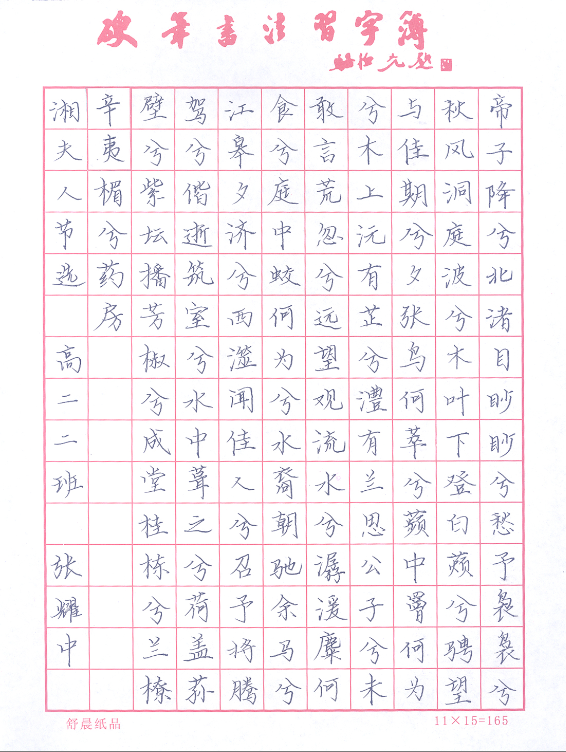 硬筆書法習字簿
帝子降兮北渚目眇眇兮愁予袅袅兮
秋风洞庭波兮木叶下登白薠兮骋望
与佳期兮夕张鸟何萃兮蘋中罾何为
兮木上沅有芷兮澧有兰思公子兮未
敢言荒忽兮远望观流水兮潺湲麋何
食兮庭中蛟何为兮水裔朝驰余马兮
江皋夕济兮西澨闻佳人兮召予将腾
驾兮偕逝筑室兮水中葺之兮荷盖荪
壁兮紫坛播芳椒兮成堂桂栋兮兰橑
辛夷楣兮药房
湘夫人节选 高二二班 张耀中
舒晨纸品
11×15=165